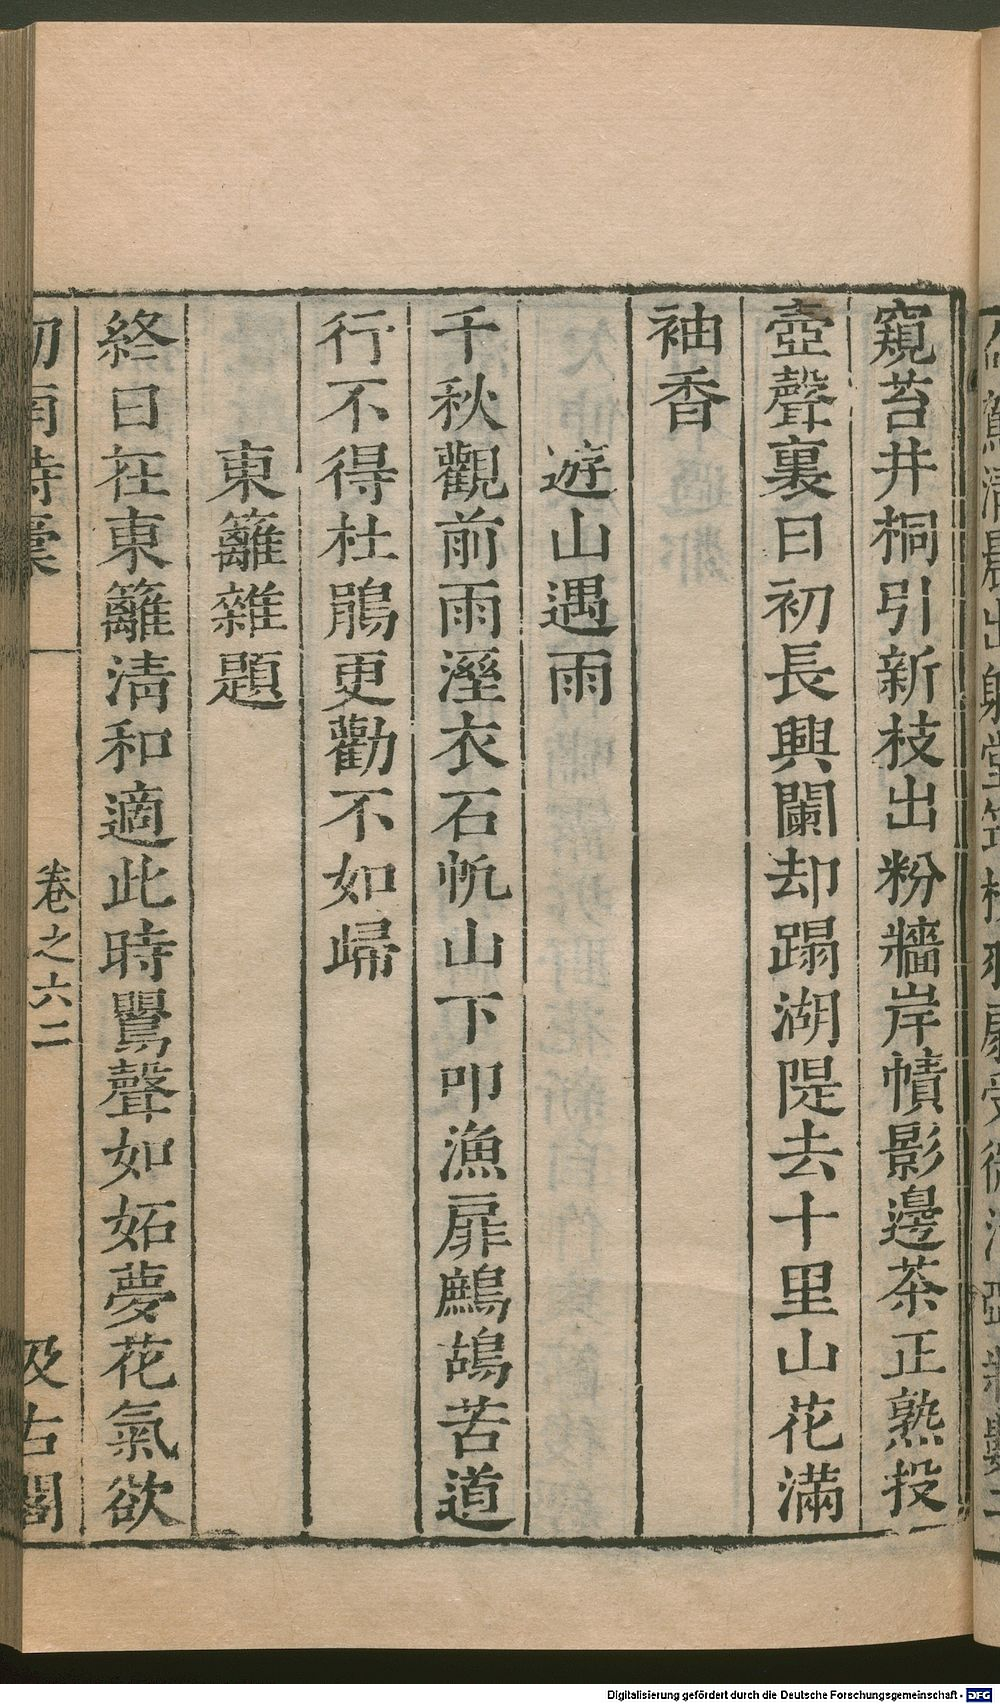 窺苔井桐引新枝出粉牆岸幘影邊茶正熟投
壺聲裏日初長興闌却蹋湖隄去十里山花滿
袖香
遊山遇雨
千秋觀前雨溼衣石帆山下叩漁扉鷓鴣苦道
行不得杜鵑更勸不如歸
東籬雜題
終日在東籬清和適此時鸎聲如妬夢花氣欲
劒南詩稾
卷之六二
汲古閣
Digitalisierung gefördert durch die Deutsche Forschungsgemeinschaft - DFG